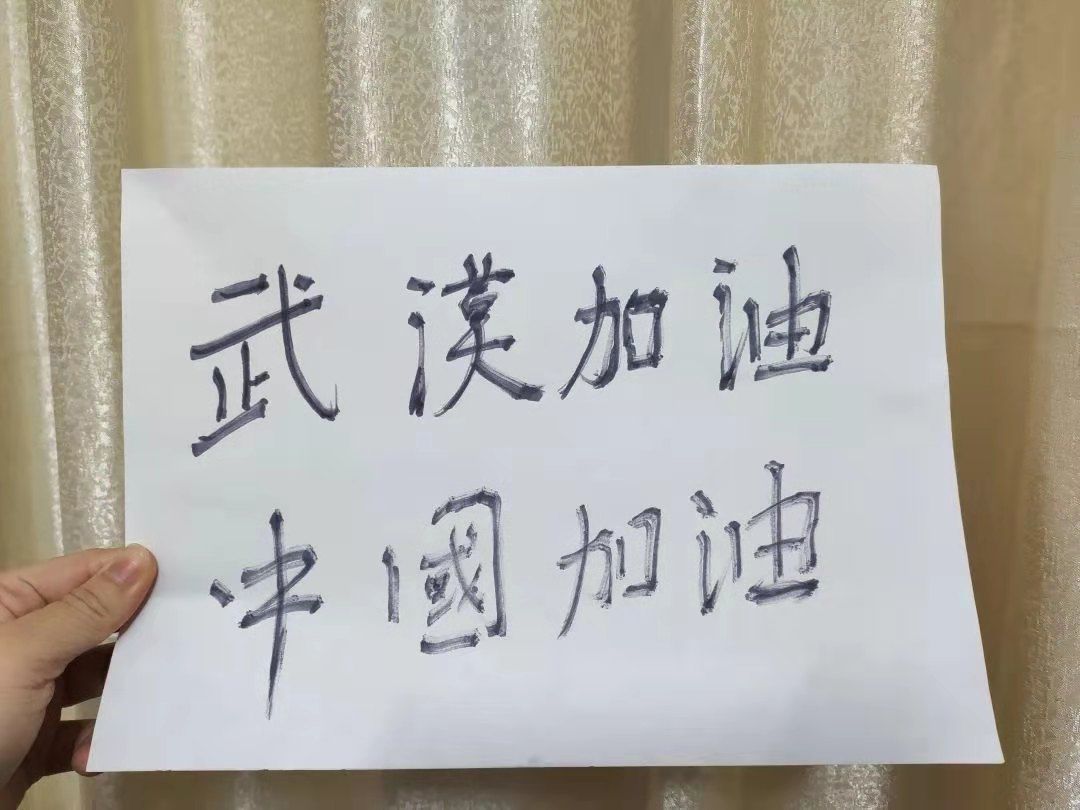 武漢加油
中國加油